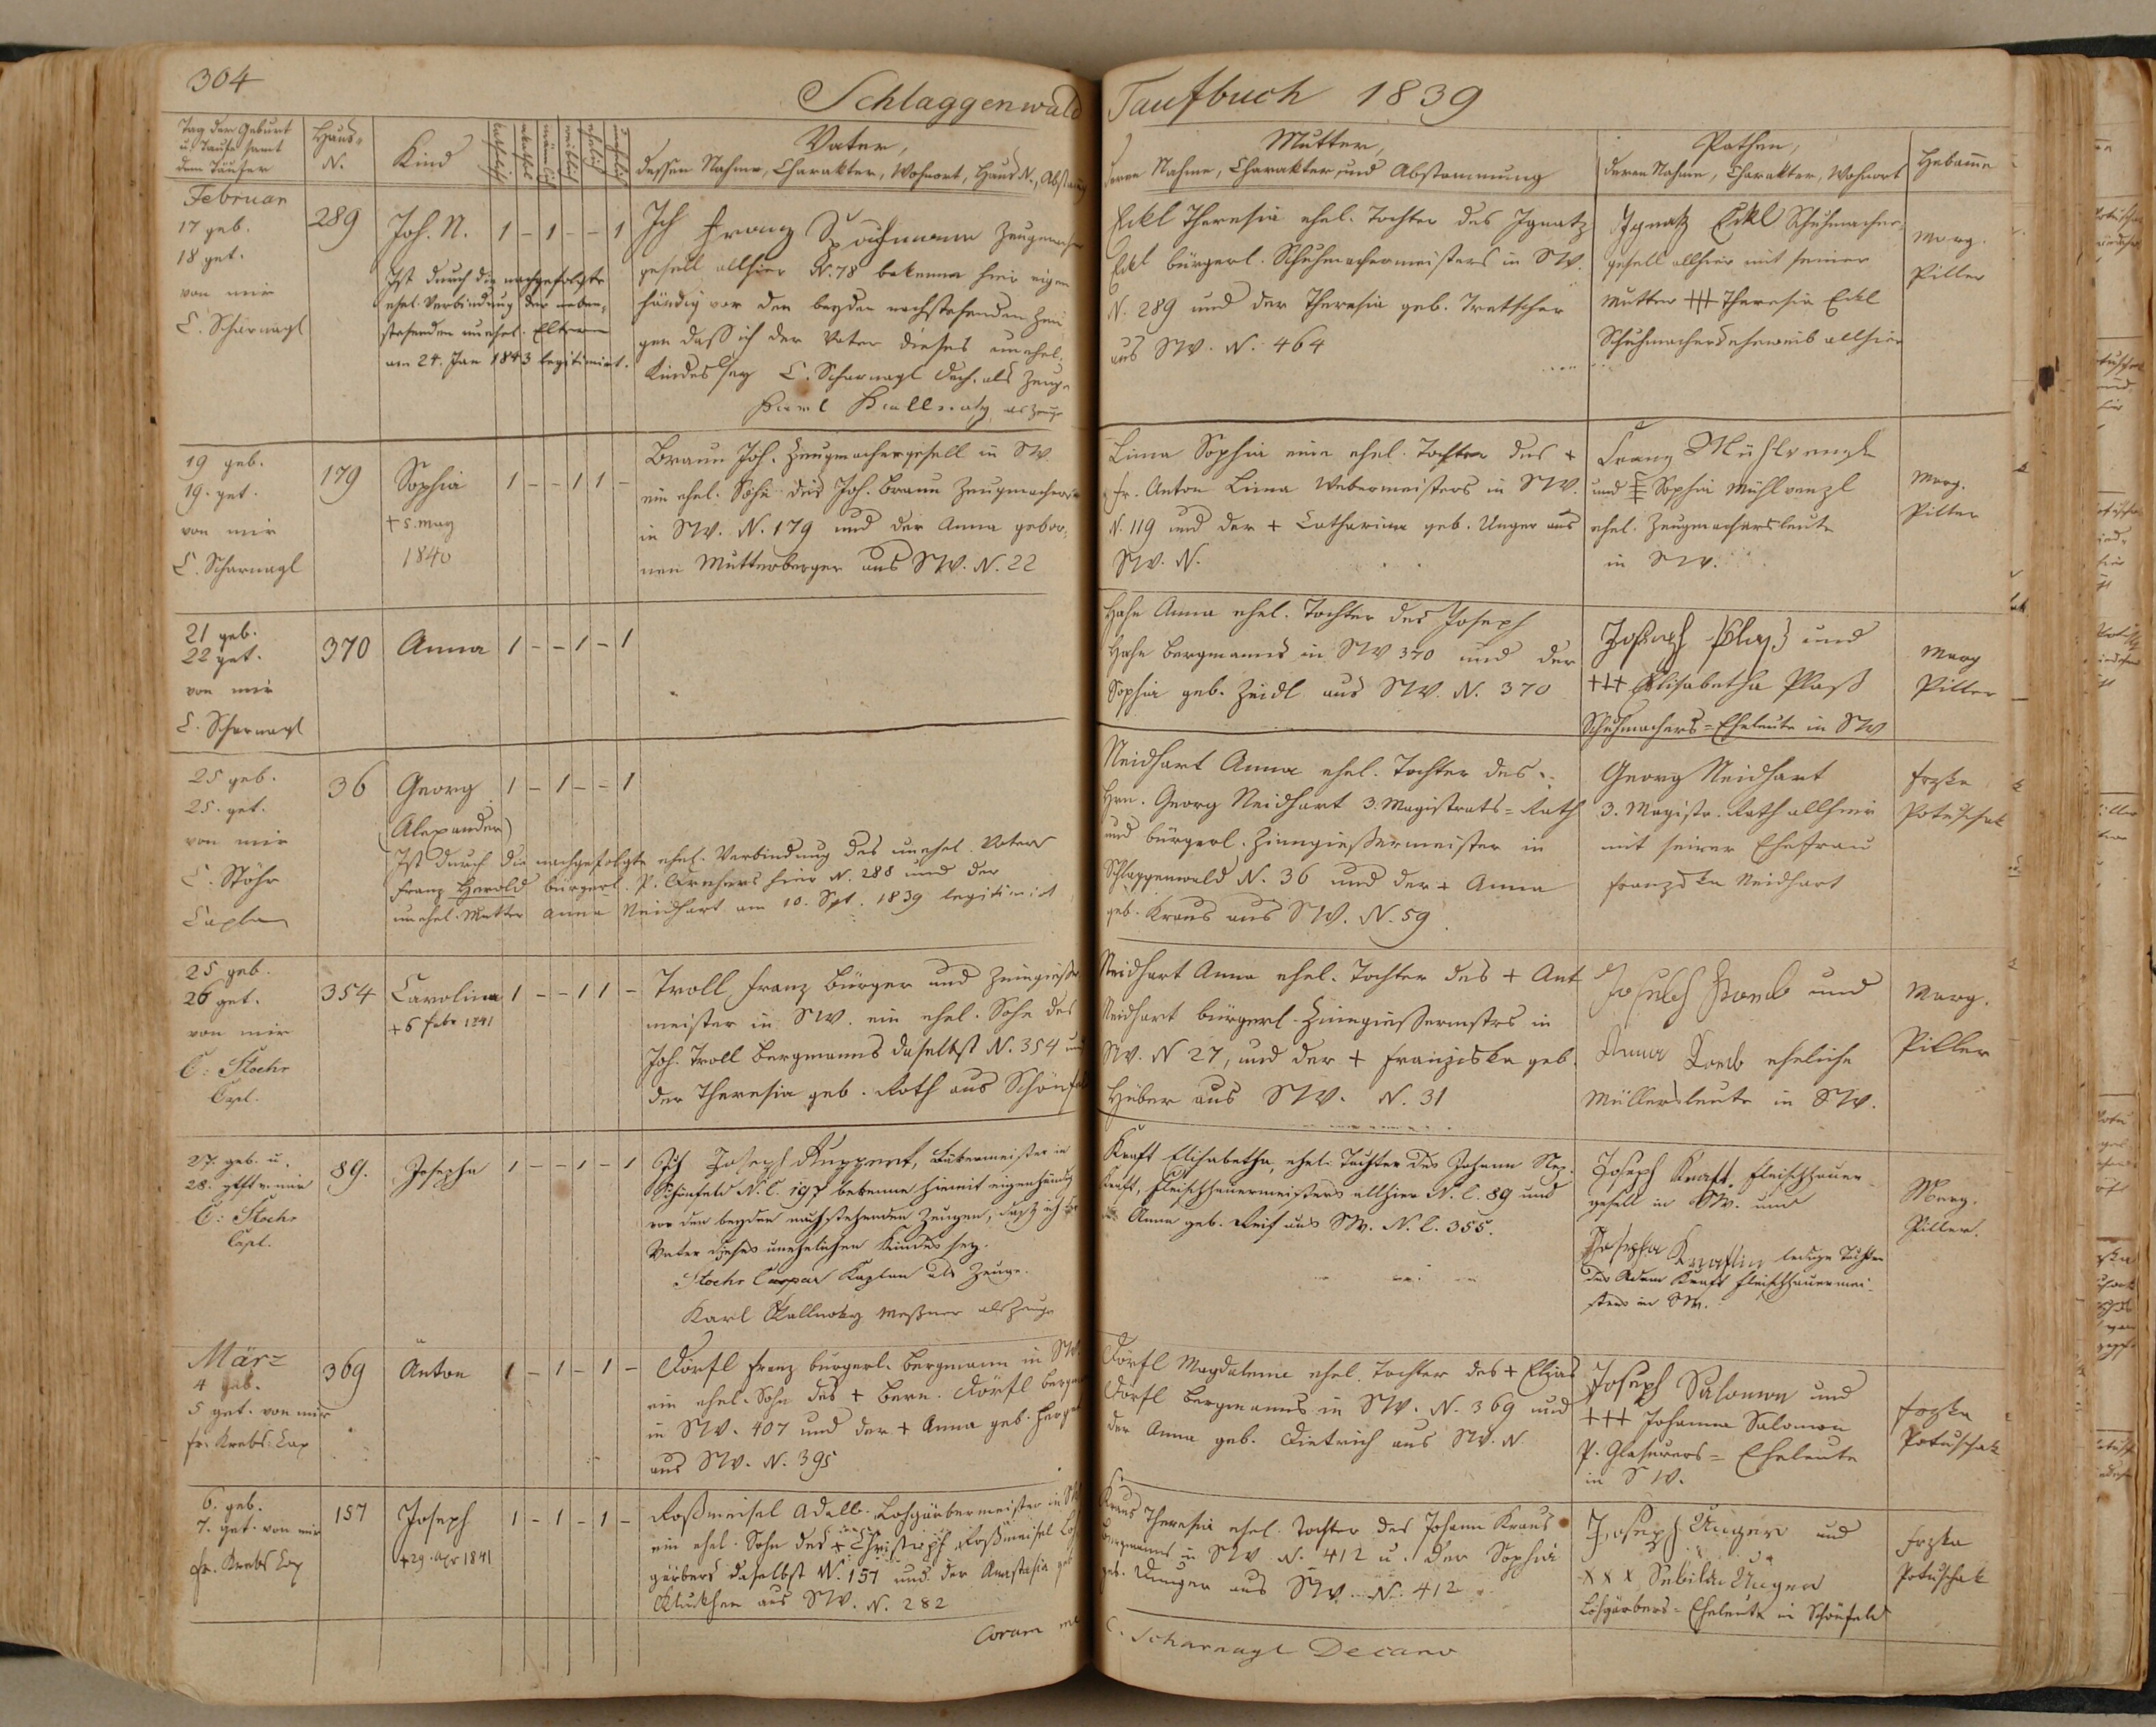 304
Schlaggenwald
Taufbuch 1839
Tag der Geburt
u. Taufe samt
dem Täufer
Haus-
N.
Kind
Vater,
dessen Nahme, Charakter, Wohnort, Haus N.,
Mutter,
deren Nahme, Charakter und Abstammung
Pathen,
deren Nahme, Charakter, Wohnort
Hebame
Februar
17 geb.
18 get.
von mir
C. Scharnagl
289
Joh. N. 1 – 1 – – 1
Ist durch die nachgefolgte
ehel. Verbindung der neben-
stehenden unehel. Eltern
am 24. Jan 1843 legitimirt.
Ich Franz
gesell allhier N. 78 bekenne hier eigen
händig vor den beyden nachstehenden Zeu
gen daß ich der Vater dieses unehel.
Kindes sey C. Scharnagl Dech. als Zeuge
Karl Kallnoky als Zeuge
Eckl Theresia ehel. Tochter des Ignatz
Eckl bürgerl. Schuhmachermeisters in SW.
N. 289 und der Theresia geb. Tretscher
aus SW. N. 464
Ignatz Eckl Schuhmacher
gesell allhier mit seiner
Mutter +++ Theresia Eckl
Schuhmachers eheweib allhier
Marg.
Piller
19 geb.
19. get.
von mir
C. Scharnagl
179
Sophia 1 – – 1 1 –
+ 5. May
1840
Braun Joh. Zeugmachergesell in SW.
ein ehel. Sohn des Joh. Braun Zeugmachers
in SW. N. 179 und der Anna gebor-
nen Mutterberger aus SW. N. 22
Lima Sophia eine ehel. Tochter des +
Fr. Anton Lima Webermeisters in SW.
N. 119 und der + Catharina geb. Unger aus
SW. N.
Franz Mühlvenzl
und +++ Sophia Mühlvenzl
ehel. Zeugmachersleute
in SW.
Marg.
Piller
21 geb.
22 get.
von mir
C. Scharnagl
370
Anna 1 – – 1 – 1
Hahn Anna ehel. Tochter des Joseph
Hahn Bergmanns in SW 370 und der
Sophia geb. Zeidl aus SW. N. 370
Joseph Plass und
+++ Elisabetha Plaß
Schuhmachers-Eheleute in SW
Marg
Piller
25 geb.
25. get.
von mir
C. Stöhr
Caplan
36
Georg 1 – 1 – – 1
(Alexander)
Ist durch die nachgefolgte ehel. Verbindung des unehel. Vaters
Franz Herold bürgerl. P. Drehers hier N. 288 und der
unehel. Mutter Anna Neidhart am 10. Spt. 1839 legitimirt
Neidhart Anna ehel. Tochter des
Hrn. Georg Neidhart 3. Magistrats-Rath
und bürgerl. Zinngießermeister in
Schlaggenwald N. 36 und der + Anna
geb. Kraus aus SW. N. 59.
Georg Neidhart
3. Magistr. Rath allhier
mit seiner Ehefrau
Franziska Neidhart
Frzka
Potuschak
25 geb.
26 get.
von mir
C: Stoehr
Capl.
354
Carolina 1 – – 1 1 –
+ 6 Febr 1841
Troll Franz Bürger und Zinngießer
meister in SW. ein ehel. Sohn des
Joh. Troll Bergmanns daselbst N. 354 und
der Theresia geb. Roth aus Schönfeld
Neidhart Anna ehel. Tochter des + Ant
Neidhart bürgerl. Zinngießermstrs in
SW. N 27, und der + Franziska geb.
Huber aus SW. N. 31
Joseph und
Anna eheliche
Müllersleute in SW.
Marg.
Piller
27. geb. u.
28. gtft v. mir
C: Stoehr
Capl.
89.
Josepha 1 – – 1 – 1
Ich Joseph Ruppert, Bäkermeister in
Schönfeld N. C. 197 bekenne hiemit eigenhändig
vor den beyden nachstehenden Zeugen, daß ich der
Vater dieses unehelichen Kindes sey.
Stoehr Caspar Kaplan als Zeuge.
Karl Kallnoky Meßner als Zeuge
Kraft Elisabetha, ehel. Tochter des Johann Nep.
Kraft, Fleischhauermeisters allhier N. C. 89 und
der Anna geb. Reif aus SW. N. C. 355.
Joseph Kraft, Fleischhauer
gesell in SW. und
Josepha Kraftin ledige Tochter
des Adam Kraft Fleischhauermei-
sters in SW.
Marg.
Piller.
März
4 geb.
5 get. von mir
Fr. Krebs Cap
369
Anton 1 – 1 – 1 –
Dörfl Franz bürgerl. Bergmann in SW.
ein ehel. Sohn des + Bern. Dörfl Bergm
in SW. 407 und der + Anna geb.
aus SW. N. 395
Dörfl Magdalena ehel. Tochter des + Elias
Dörfl Bergmanns in SW. N. 369 und
der Anna geb. Dietrich aus SW. N
Joseph Salomon und
+++ Johanna Salomon
P. Glasurers-Eheleute
in SW.
Frzka
Potuschak
6. geb.
7. get. von mir
Fr. Krebs Cap
157
Joseph 1 – 1 – 1 –
+ 29. Apr 1841
Roßmeisel Adalb. Lohgärbermeister in SW
ein ehel. Sohn des + Christoph Roßmeisel Loh
gärbers daselbst N. 157 und der Anastasia geb
aus SW. N. 282
Kraus Theresia ehel. Tochter des Johann Kraus
Bergmanns in SW N. 412 u. der Sophia
geb. Unger aus SW. N. 412
Joseph Unger und
x x x Sebilda Unger
Lohgärbers-Eheleute in Schönfeld
Frzka
Potuschak
Coram me
C. Scharnagl Decano